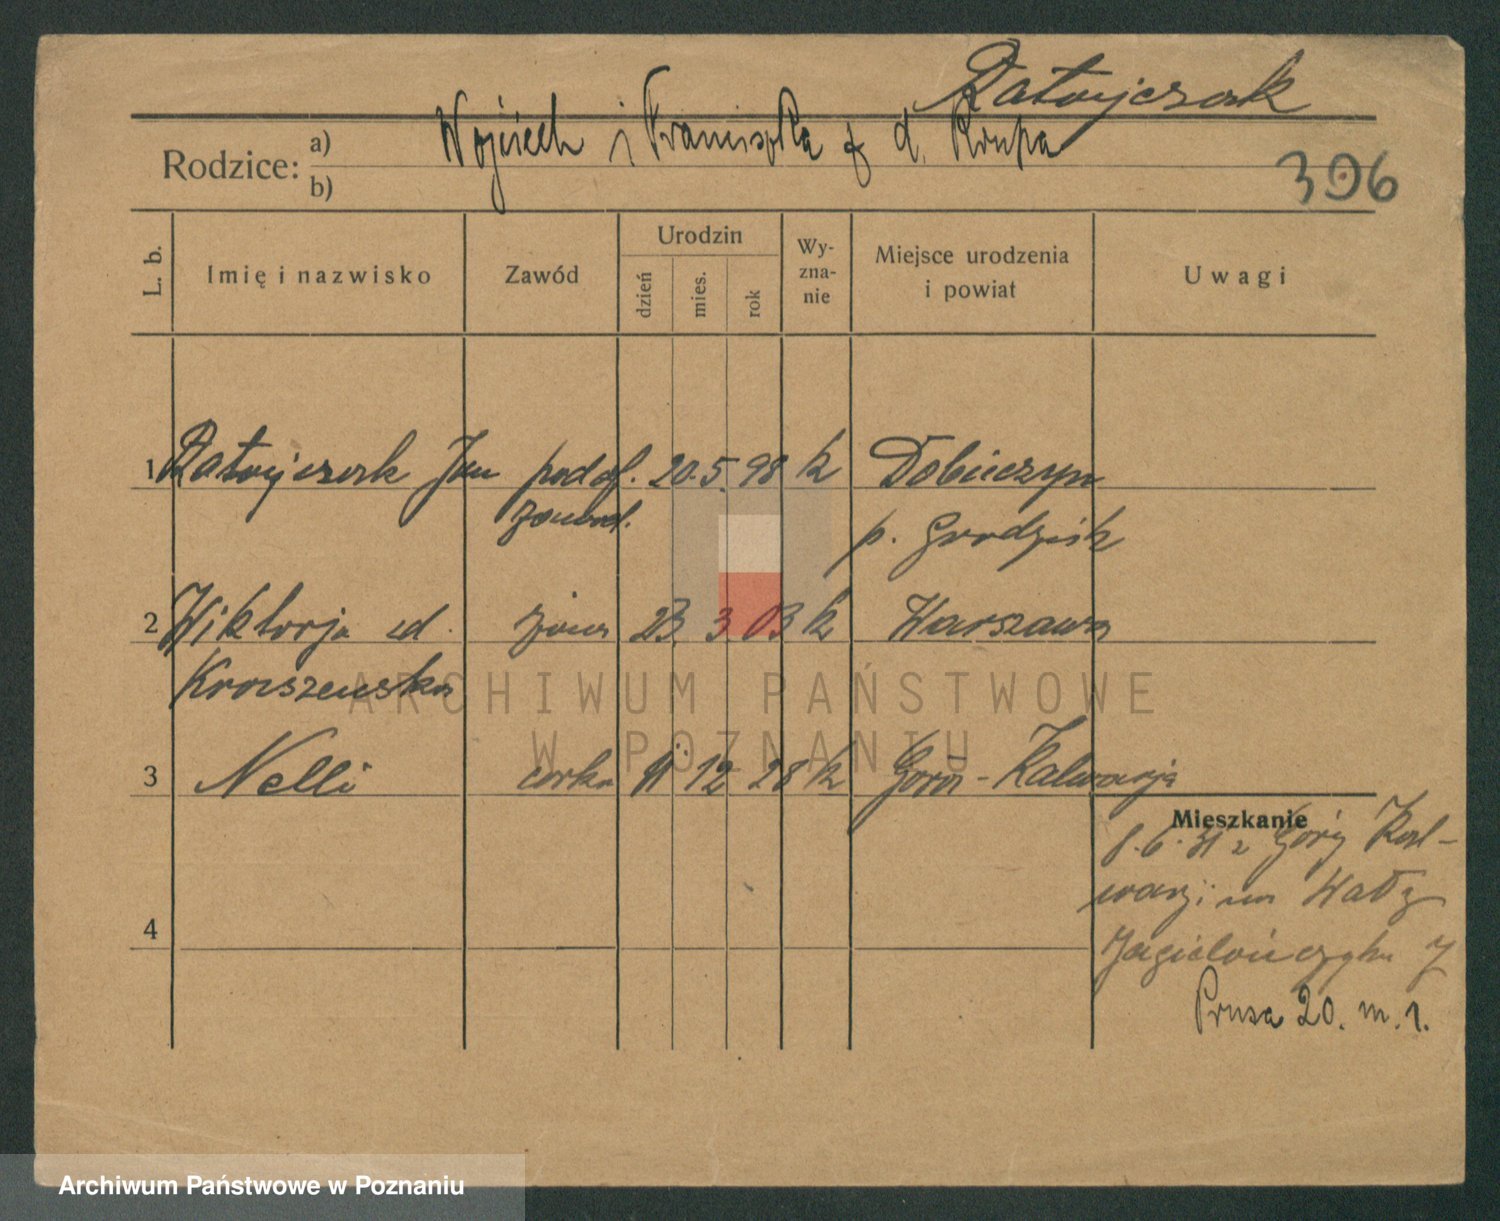 Ratajczak
Wojciech i Franciszka z d. Krupa
Rodzice: a)
b)
396
L. b.
Imię i nazwisko
Zawód
Urodzin
dzień
mies.
rok
Wy-
zna-
nie
Miejsce urodzenia
i powiat
Uwagi
1 Ratajczak Jan podof. 20. 5. 98 k Dobieczyn
zawod. p. Grodzisk
2 Wiktorja żona 23. 3. 03 k Warszawa
Kraszewska
3 Nelli corka 11 12 28 k Gora-Kalwarja
Mieszkanie
6. 31 z Góry Kal-
warji na
Jagielończyka
4
Prusa 20. m. 1.
ARCHIWUM PAŃSTWOWE
W POZNANIU
Archiwum Państwowe w Poznaniu